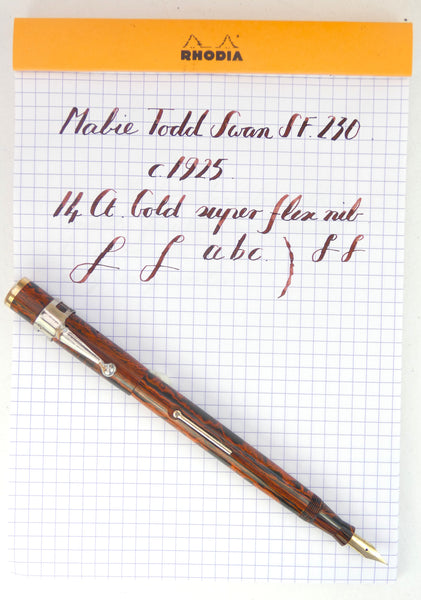 RHODIA
Mabie Todd Swan SF. 230.
c.1925.
14 Ct. Gold super flex nib
f f abc. ) f f